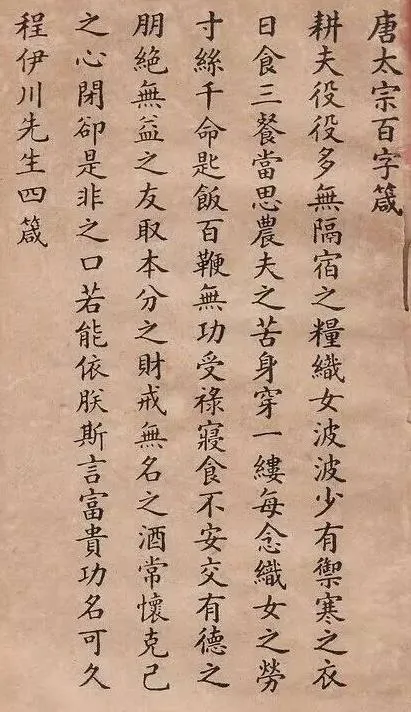 唐太宗百字箴
耕夫役役多無隔宿之糧織女波波少有禦寒之衣
日食三餐當思農夫之苦身穿一縷每念織女之勞
寸絲千命匙飯百鞭無功受祿寢食不安交有德之
朋絕無益之友取本分之財戒無名之酒常懷克己
之心閉卻是非之口若能依朕斯言富貴功名可久
程伊川先生四箴